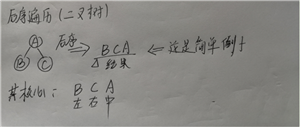 后序遍历(二叉树)
A
B C
后序
BCA
结果
<= 这是简单例子
其核心:BCA
左右中